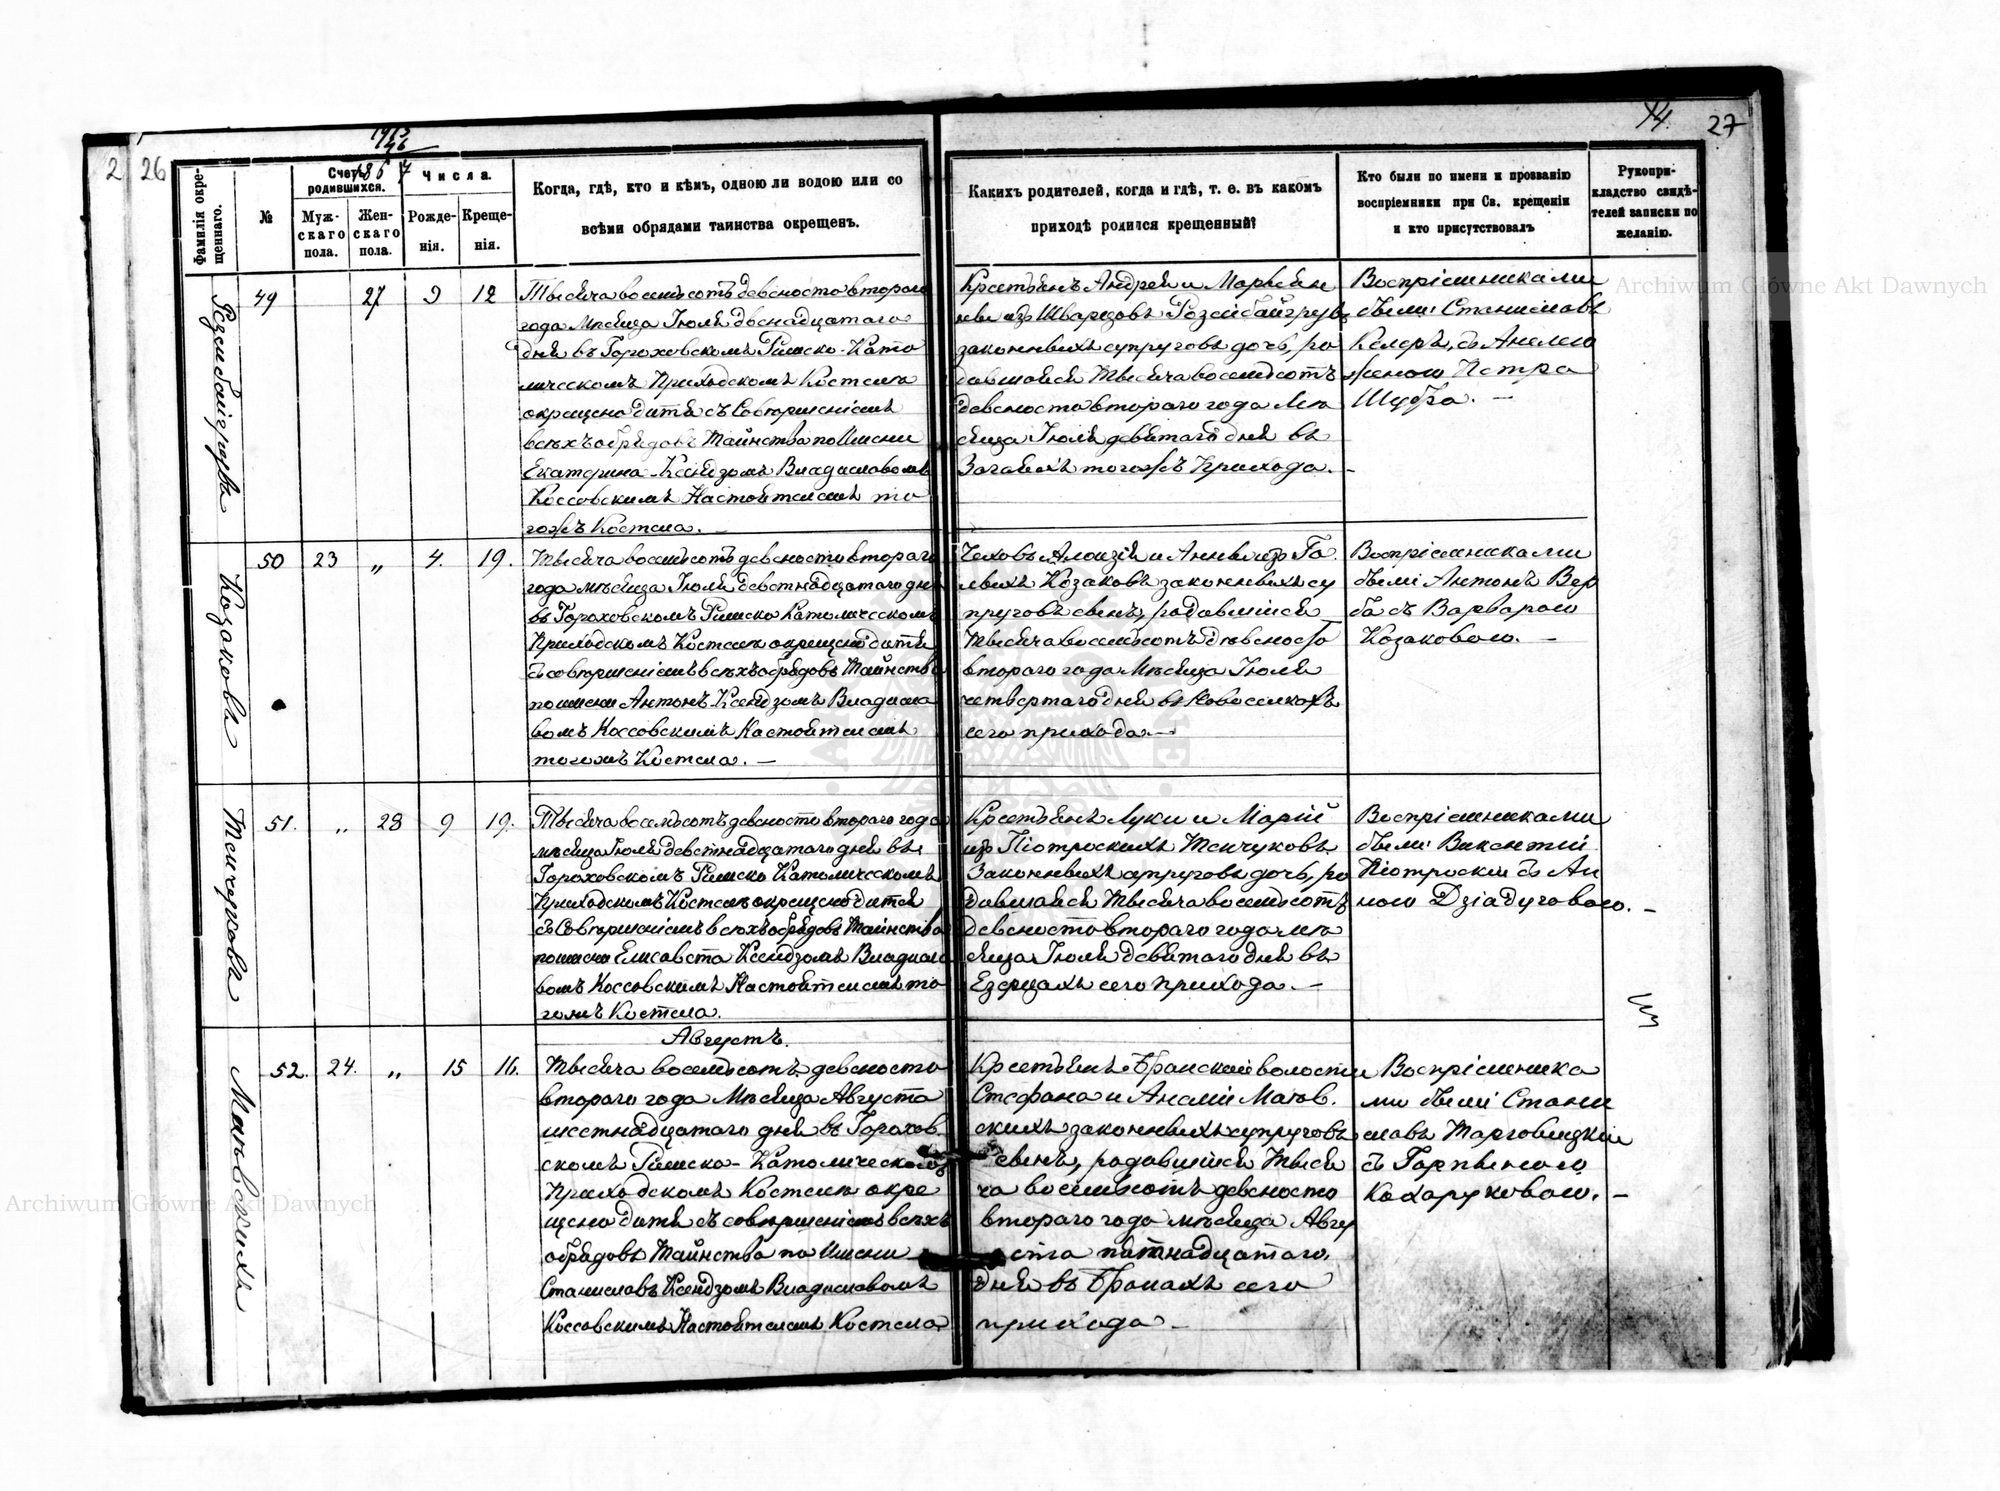 1913
26
1867
2 26
14. 27
Фамилія окре-
щеннаго.
№
Счетъ
родившихся.
Муж-
скаго
пола.
Жен-
скаго
пола.
Числа.
Рожде-
нія.
Креще-
нія.
Когда, гдѣ, кто и кѣмъ, одною ли водою или со
всѣми обрядами таинства окрещенъ.
Какихъ родителей, когда и гдѣ, т. е. въ какомъ
приходѣ родился крещенный?
Кто были по имени и прозванію
воспріемники при Св. крещеніи
и кто присутствовалъ
Рукопри-
кладство свидѣ-
телей записки по
желанію.
49 27 9 12
Тысяча восемьсотъ девяносто второго
года Мѣсяца Іюля двенадцатаго
дня въ Гороховскомъ Римско-Като
лическомъ Приходскомъ Костелѣ
окрещено дитя съ Совершеніемъ
всѣхъ обрядовъ Таинства по Имени
Екатерина-Ксендзомъ Владиславомъ
Коссовскимъ Настоятелемъ то
гожъ Костела. —
Крестьянъ Андрея и Марьян
ны изъ Шварцовъ
законныхъ супруговъ дочь, ро
давшаяся Тысяча восемьсотъ
девяносто второго года Мѣ
сяца Іюля девятаго дня въ
тогожъ Прихода. —
Воспріемниками
были: Станиславъ
Келеръ, съ Анелею
женою Петра
Шубта. —
Козаковъ
50 23 „ 4. 19.
Тысяча восемьсотъ девяносто второго
года мѣсяца Іюля девятнадцатаго дня
въ Гороховскомъ Римско Католическомъ
Приходскомъ Костелѣ окрещено дитя
съ совершеніемъ всѣхъ обрядовъ Таинства
по имени Антонъ-Ксендзомъ Владисла
вомъ Коссовскимъ Настоятелемъ
тогожъ Костела. —
Чеховъ Алоизія и Анны изъ Га
лыхъ Козаковъ законныхъ су
пруговъ сынъ, родившійся
Тысяча восемьсотъ девяносто
второго года Мѣсяца Іюля
четвертаго дня въ Новоселкахъ
сего прихода. —
Воспріемниками
были Антонъ Вер
ба съ Варварою
Козаковою. —
Тенчуковъ
51. „ 28 9 19.
Тысяча восемьсотъ девяносто второго года
мѣсяца Іюля девятнадцатаго дня въ
Гороховскомъ Римско Католическомъ
Приходскомъ Костелѣ окрещено дитя
съ Совершеніемъ всѣхъ обрядовъ Таинства
по имени Елисавета Ксендзомъ Владисла
вомъ Коссовскимъ Настоятелемъ то
гожъ Костела.
Крестьянъ Луки и Маріи
изъ Піотроскихъ Тенчуковъ
Законныхъ супруговъ дочь, ро
дившаяся Тысяча восемьсотъ
девяносто второго года мѣ
сяца Іюля девятаго дня въ
Езерцахъ сего прихода. —
Воспріемниками
были: Викентій
Піотроскій съ Ан
ною Дзіадуховою. —
Августъ.
Маньскихъ
52. 24. „ 15 16.
Тысяча восемьсотъ девяносто
второго года Мѣсяца Августа
шестнадцатаго дня въ Горохов
скомъ Римско-Католическомъ
Приходскомъ Костелѣ окре
щено дитя съ совершеніемъ всѣхъ
обрядовъ Таинства по Имени
Станиславъ Ксендзомъ Владиславомъ
Коссовскимъ Настоятелемъ Костела
Крестьянъ Бранской волости
Стефана и Анеліи Мань
скихъ законныхъ супруговъ
сынъ, родившійся Тыся
ча восемьсотъ девяносто
второго года мѣсяца Авгу
ста пятнадцатаго
дня въ Бранахъ сего
прихода —
Воспріемника
ми были Стани
славъ Тарговицкій
съ Горпыною
Кохаруковою. —
Archiwum Główne Akt Dawnych
Archiwum Główne Akt Dawnych